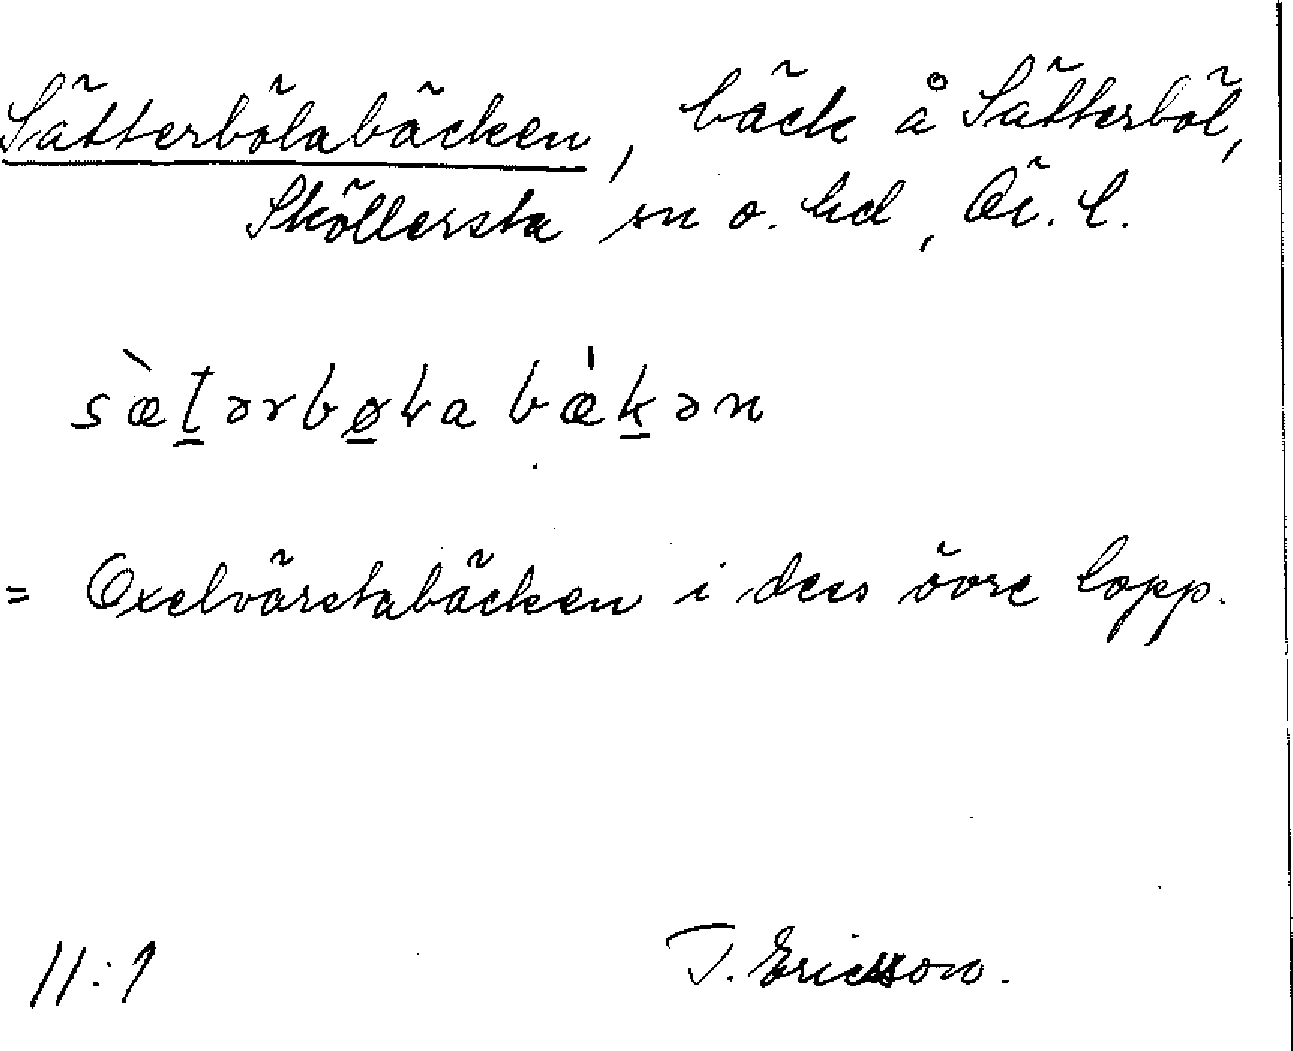 Sätterbölabäcken, bäck å Sätterböl,
Sköllersta sn o. hd, Ör. l.
sæ̀t̠ərbø̠ɬa bæ̍k̠ən
= Oxelvärstabäcken i dess övre lopp.
11:1 J. Ericsson.